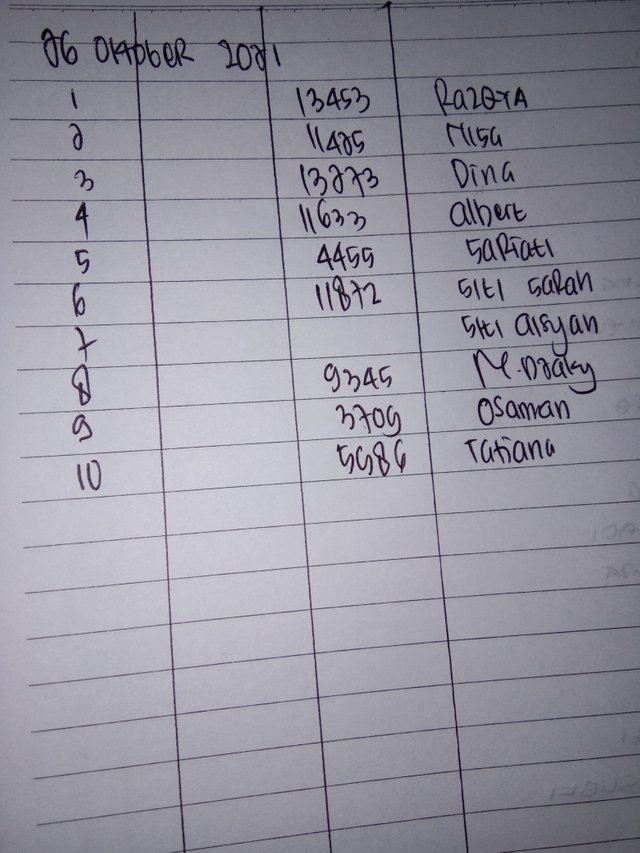 26 Oktober 2021
1 13453 Razqya
2 11425 Nisa
3 13273 Dina
4 11633 Albert
5 4455 Sariati
6 11872 Siti Sarah
7 Siti Aisyah
8 9345 M. Dzaky
9 3709 Osaman
10 5586 Tatiana